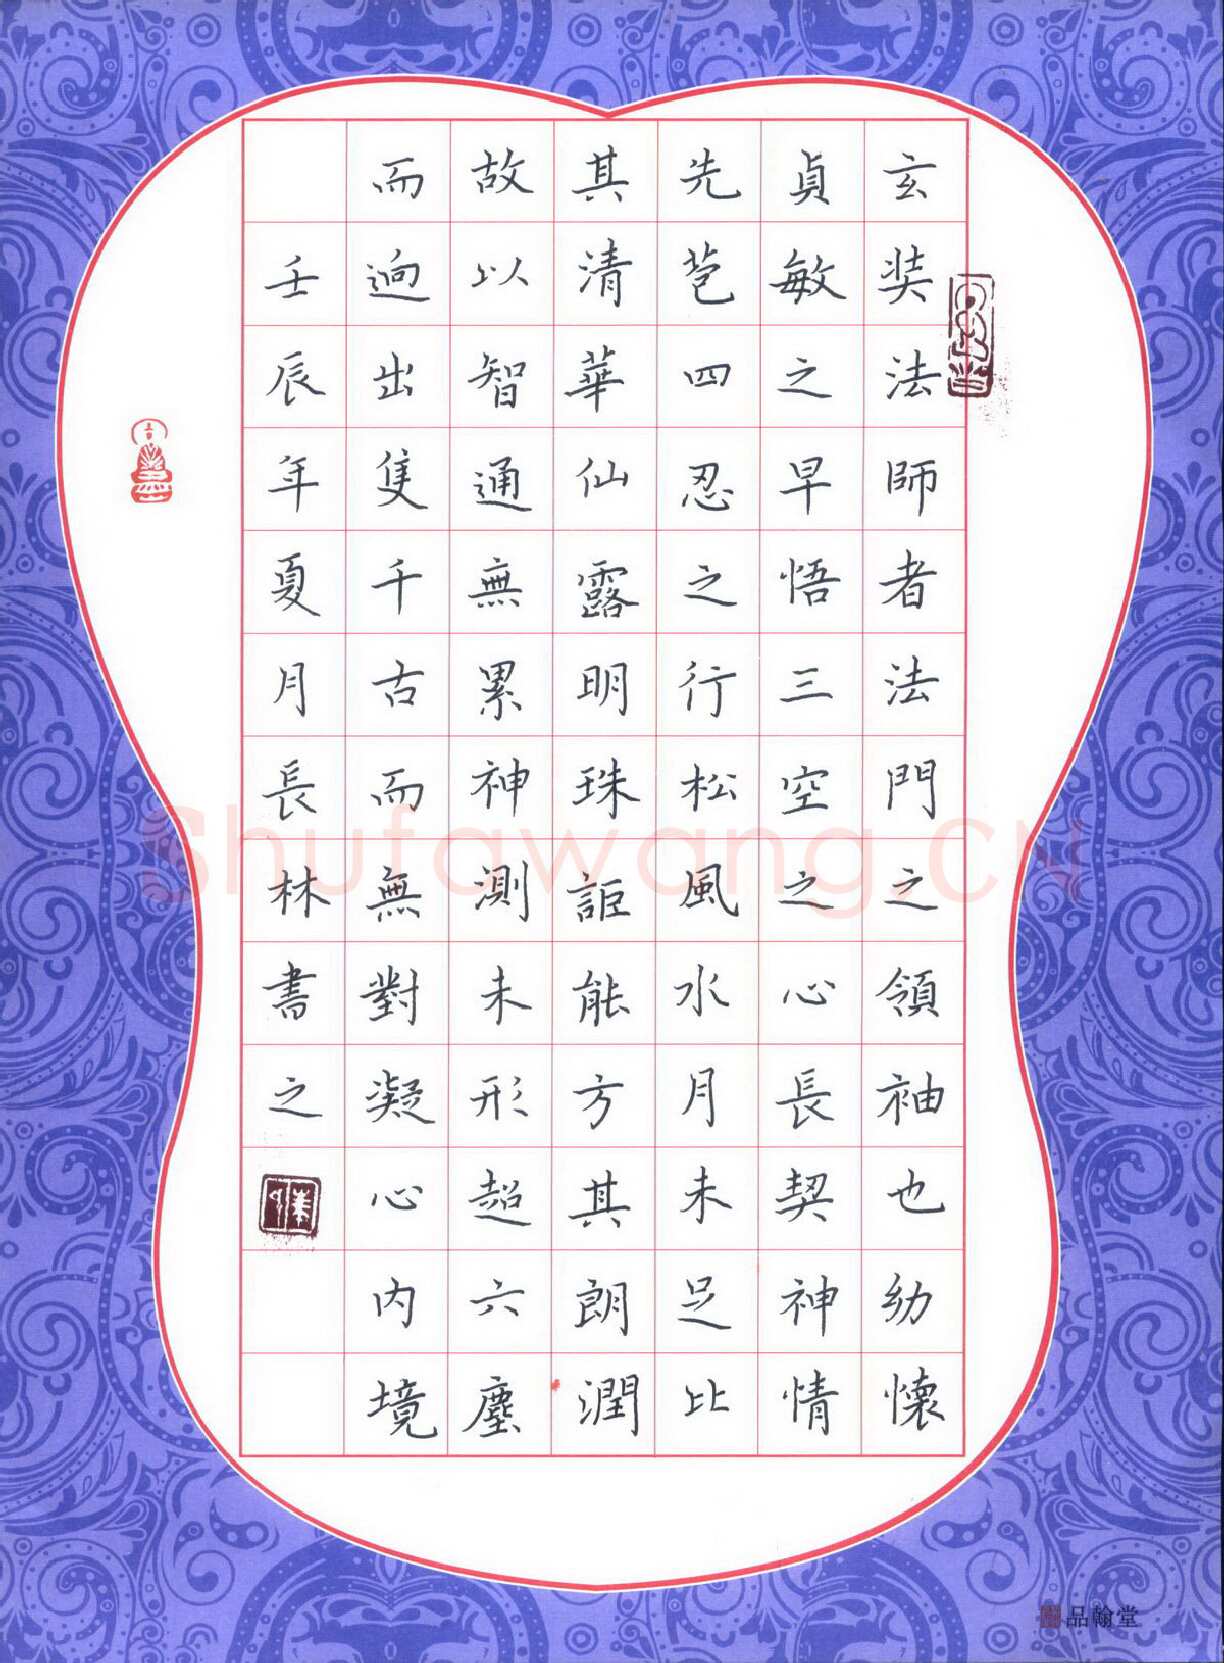 玄奘法師者法門之領袖也幼懷
貞敏之早悟三空之心長契神情
先苞四忍之行松風水月未足比
其清華仙露明珠詎能方其朗潤
故以智通無累神測未形超六塵
而逈出隻千古而無對凝心內境
壬辰年夏月長林書之
Shufawang.CN
品翰堂